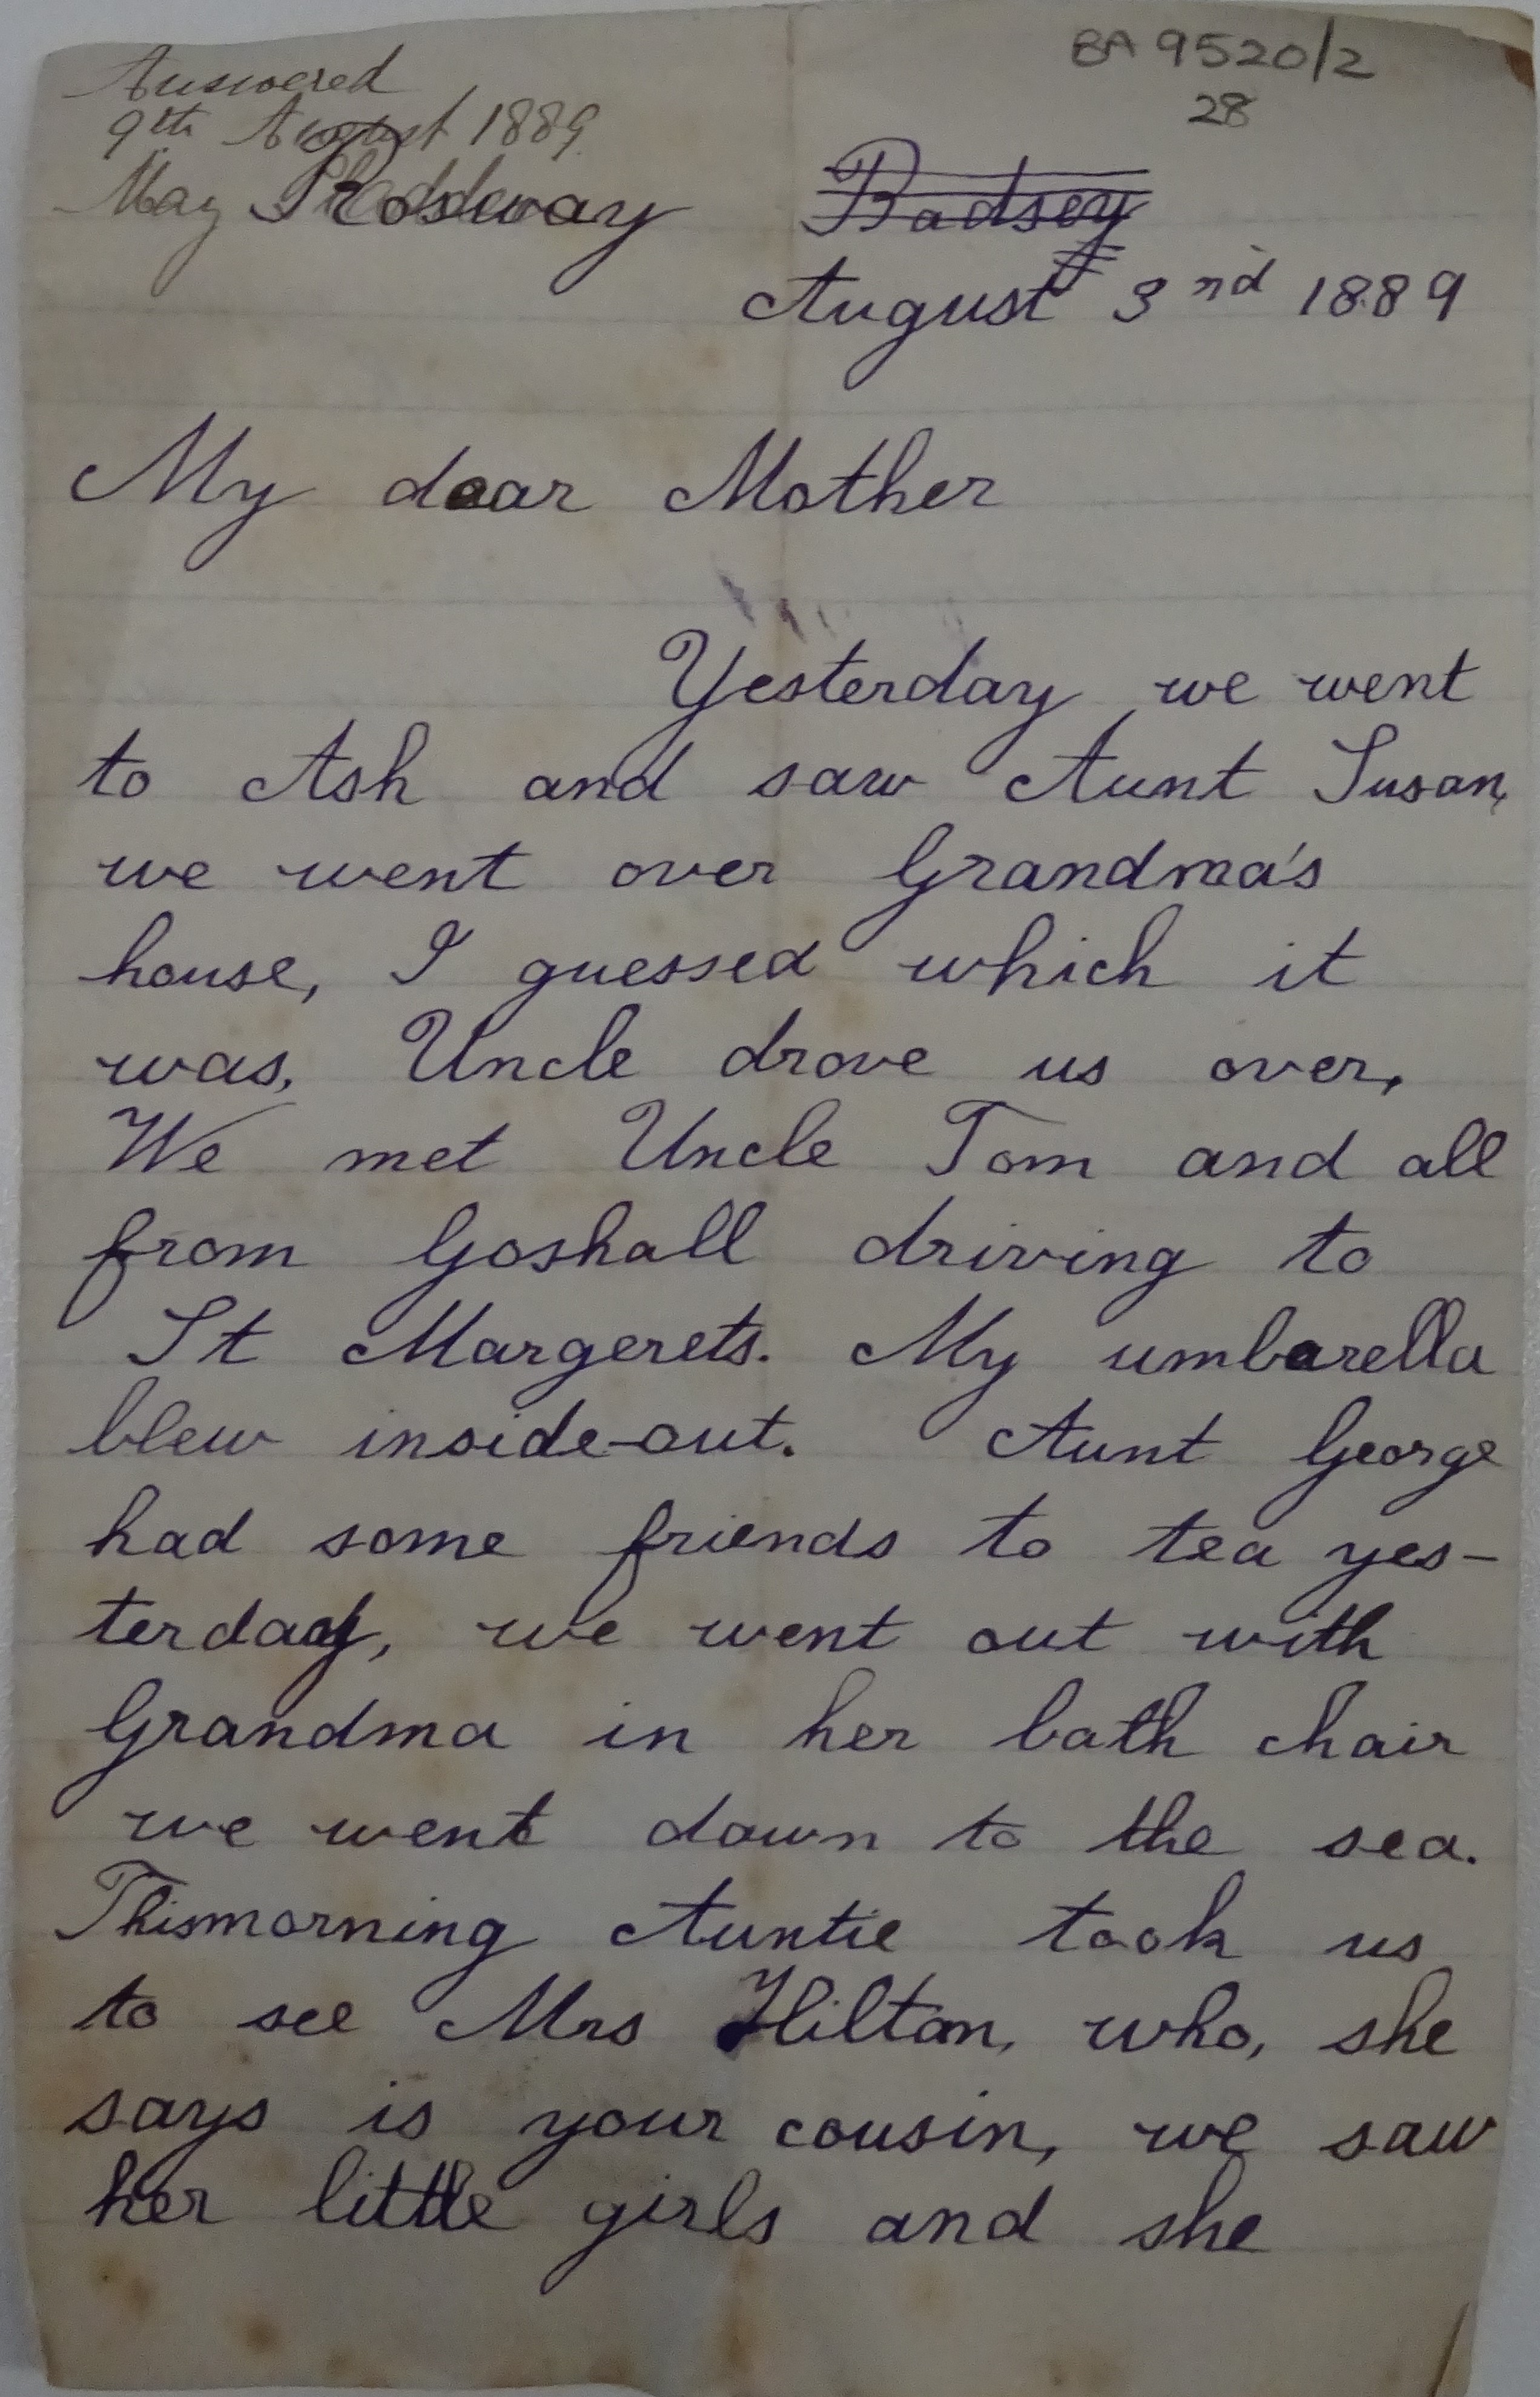 Answered
BA 9520/2
9th August 1889
28
May
Badsey
August 3nd 1889
My dear Mother
Yesterday we went
to Ash and saw Aunt Susan,
we went over Grandma's
house, I guessed which it
was. Uncle drove us over.
We met Uncle Tom and all
from Goshall driving to
St Margerets. My umbarella
blew inside-out. Aunt George
had some friends to tea yes-
terday, we went out with
Grandma in her bath chair
we went down to the sea.
Thismorning Auntie took us
to see Mrs Hilton, who, she
says is your cousin, we saw
her little girls and she